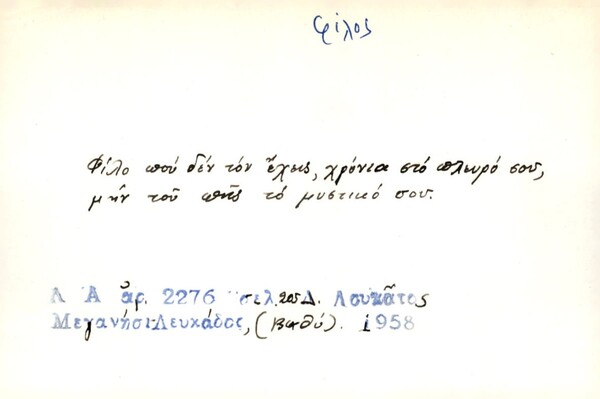 φίλος
Φίλο πού δέν τόν ἔχεις, χρόνια στό πλευρό σου,
μήν τοῦ πῆς τό μυστικό σου.
Λ Α ἀρ. 2276 σελ. 205 Δ. Λουκᾶτος
Μεγανήσι Λευκάδος, (Βαθύ). 1958